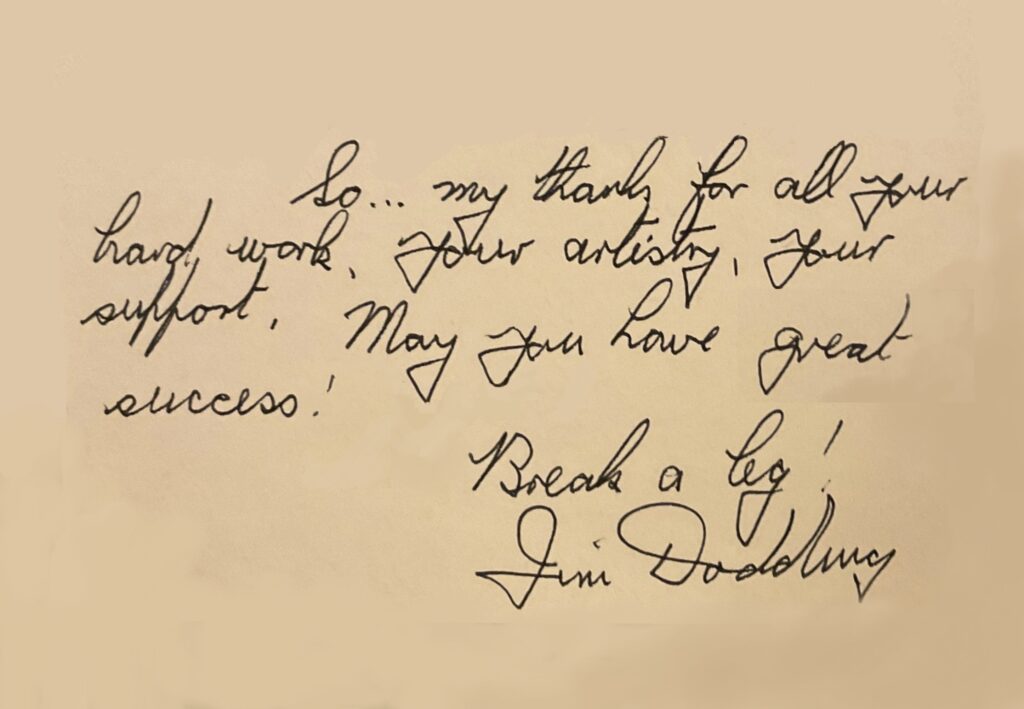 So... my thanks for all your
hard work, your artistry, your
support. May you have great
success!
Break a leg!
Jim Dodding